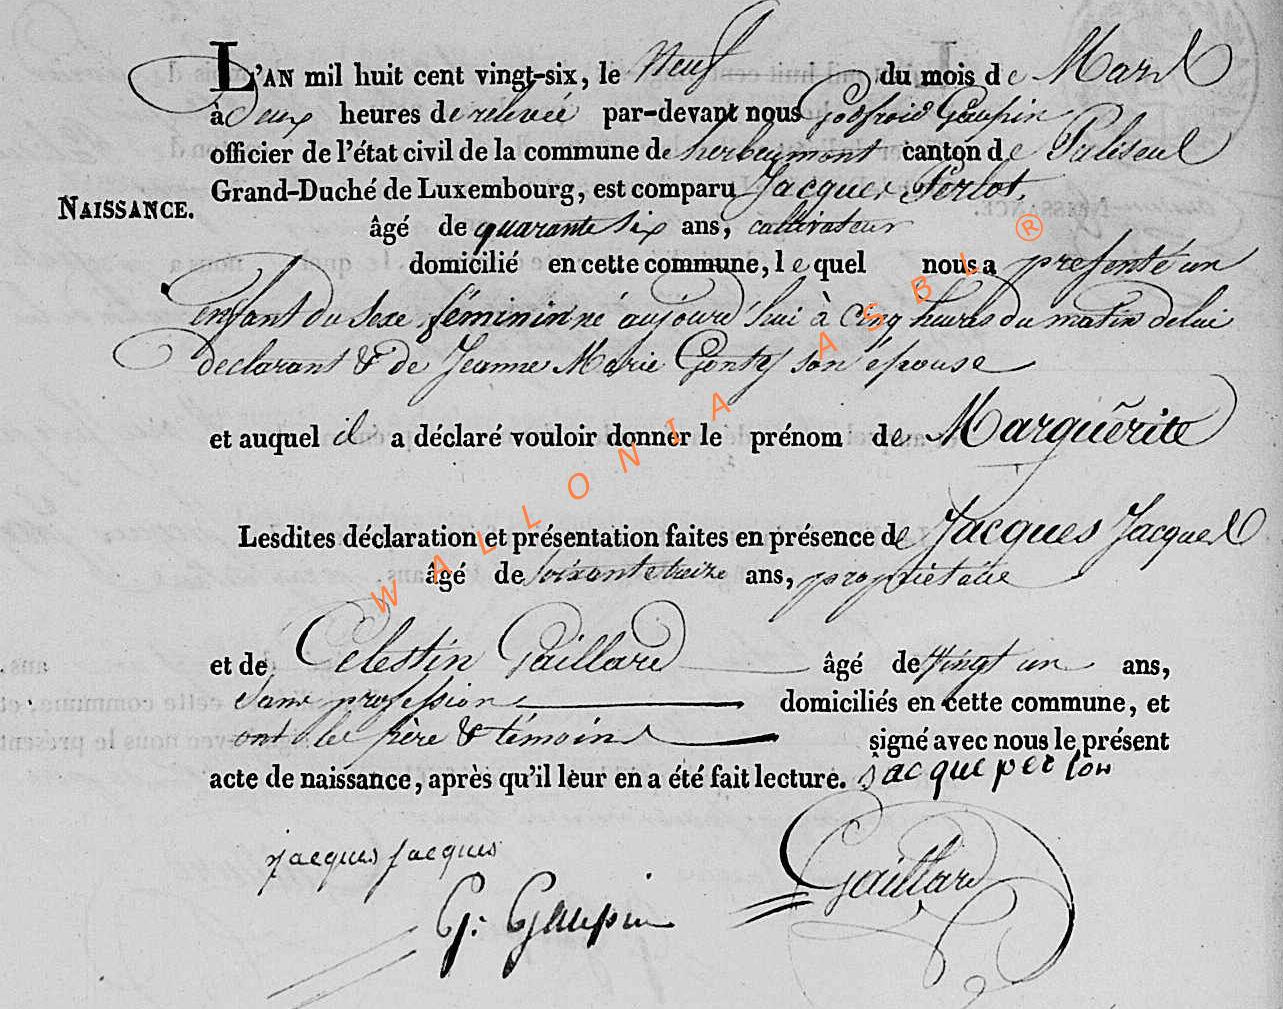 L'AN mil huit cent vingt-six, le Neuf du mois de Mars
à deux heures de relevée par-devant nous Godfroid Gaupin
officier de l'état civil de la commune de herbeumont canton de Paliseul
Grand-Duché de Luxembourg, est comparu Jacques Perlot
NAISSANCE.
âgé de quarante six ans, cultivateur
domicilié en cette commune, lequel nous a présenté un
enfant du sexe féminin né aujourd'hui à cinq heures du matin de lui
declarant & de Jeanne Marie Gonty son épouse
et auquel il a déclaré vouloir donner le prénom de Marguerite
Lesdites déclaration et présentation faites en présence de Jacques Jacques
âgé de soixante treize ans, propriétaire
et de Celestin Gaillard âgé de vingt un ans,
sans profession domiciliés en cette commune, et
ont les père & témoins signé avec nous le présent
acte de naissance, après qu'il leur en a été fait lecture. jacque perlot
jacques jacques
G. Gaupin
Gaillard
WALLONIA ASBL ®